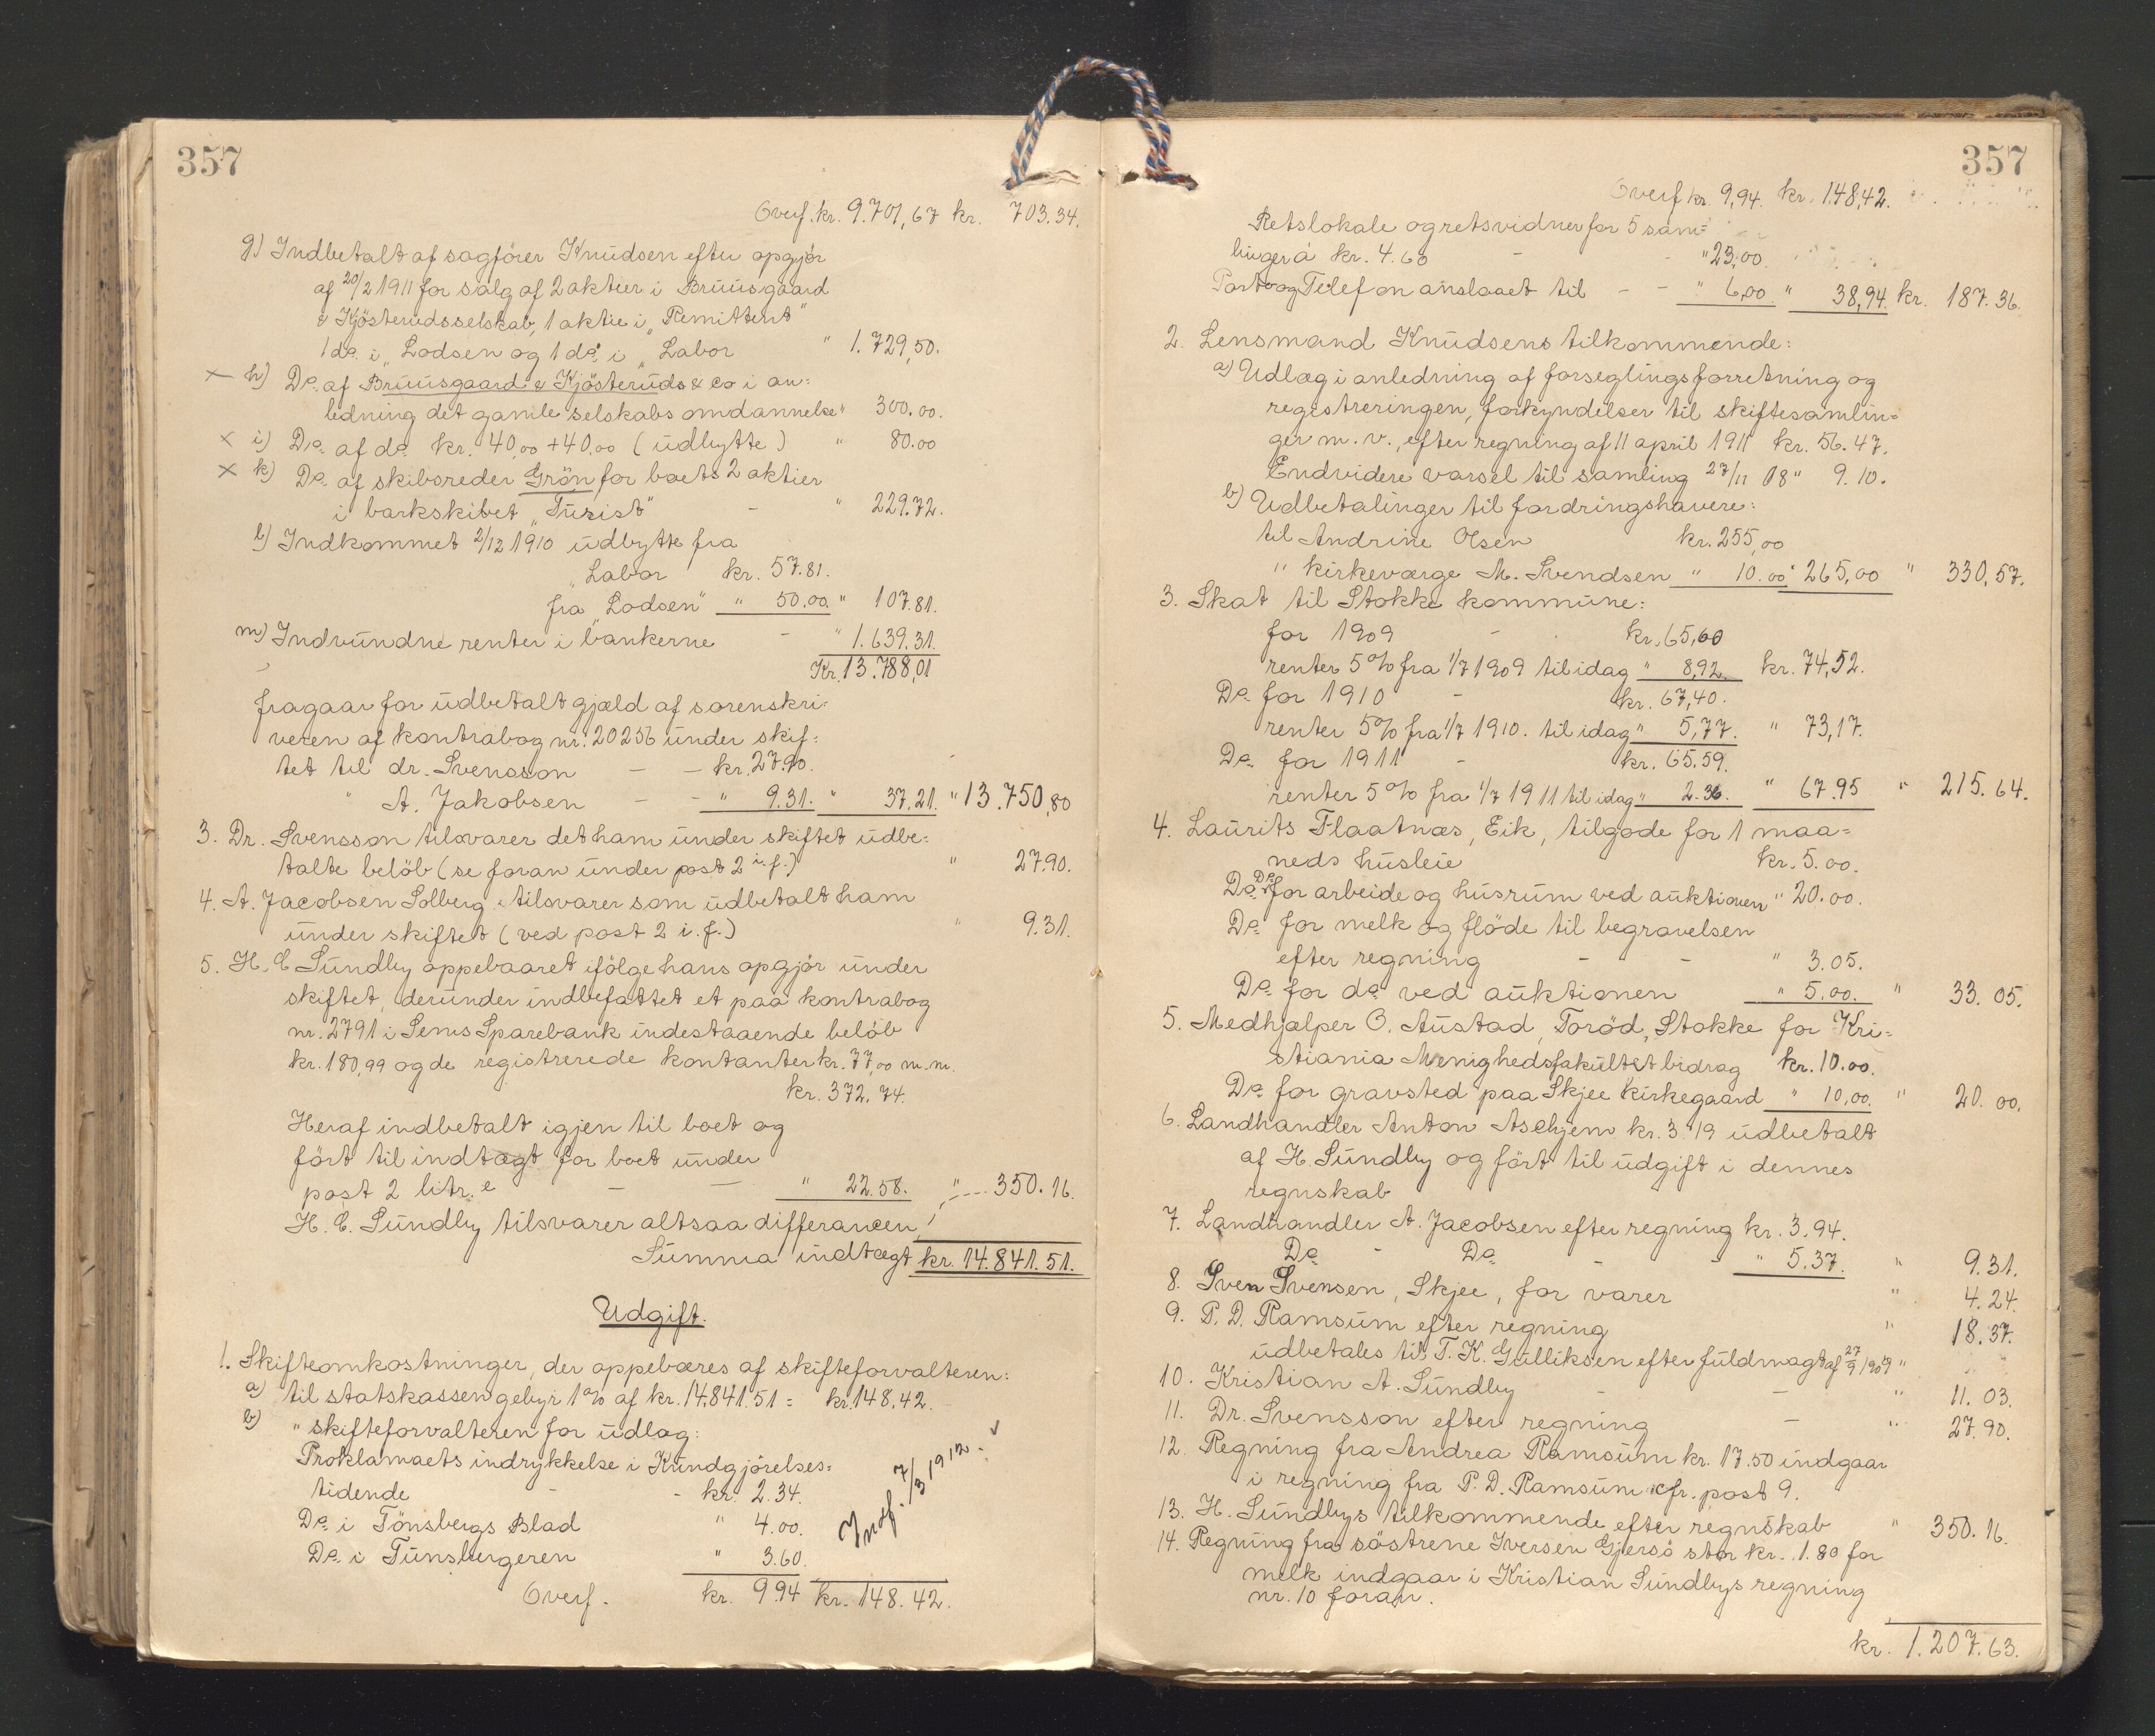 357
Overf. kr. 9.701,67 kr. 703.34.
g) Indbetalt af sagfører Knudsen efter opgjør
af 20/2 1911 for salg af 2 aktier i Bruusgaard
& Kjøsteruds selskab, 1 aktie i „Remittent"
1 do. i „Lodsen og 1 do. i „Labor " 1.729,50.
h) Do. af Bruusgaard & Kjøsteruds & Co i an=
ledning det gamle selskabs omdannelse " 300.00.
i) Do. af do. kr. 40,00 + 40,00 (udbytte) " 80.00
k) Do. af skibsreder Grøn for boets 2 aktier
i barkskibet „Turist" - " 229.72.
l) Indkommet 2/12 1910 udbytte fra
„Labor kr. 57.81.
fra „Lodsen" " 50.00. " 107.81.
m) Indvundne renter i bankerne - " 1.639.31.
Kr. 13.788,01
fragaar for udbetalt gjæld af sorenskri=
veren af kontrabog nr. 20256 under skif=
tet til dr. Svensson - - kr. 27.90.
" A. Jakobsen - - " 9.31. " 37.21. " 13.750,80
3. Dr. Svensson tilsvarer det ham under skiftet udbe=
talte beløb (se foran under post 2 i.f.) " 27.90.
4. A. Jacobsen Solberg tilsvarer som udbetalt ham
under skiftet (ved post 2 i.f.) " 9.31.
5. H. C. Sundby oppebaaret ifølge hans opgjør under
skiftet, derunder indbefattet et paa kontrabog
nr. 2791 i Sems Sparebank indestaaende beløb
kr. 180,99 og de registrerede kontanter kr. 77,00 m.m.
kr. 372.74.
Heraf indbetalt igjen til boet og
ført til indtægt for boet under
post 2 litr. e - - " 22.58. " 350.16.
H. C. Sundby tilsvarer altsaa differancen
Summa indtægt kr. 14.841.51.
Udgift.
1. Skifteomkostninger, der oppebæres af skifteforvalteren:
a) til statskassen gebyr 1% af kr. 14,841.51 = kr. 148.42.
b) " skifteforvalteren for udlæg:
Proklamaets indrykkelse i Kundgjørelses=
tidende - - kr. 2.34.
Do. i Tønsbergs Blad " 4.00.
Do. i Tunsbergeren " 3.60.
Indf. 7/3 1912.
Overf. kr. 9.94 kr. 148.42.
357
Overf kr. 9,94. kr. 148,42.
Retslokale og retsvidner for 5 sam=
linger á kr. 4.60 - - " 23,00.
Porto og Telefon anslaaet til - - " 6,00. " 38,94. kr. 187.36.
2. Lensmand Knudsens tilkommende:
a) Udlæg i anledning af forseglingsforretning og
registreringen, forkyndelser til skiftesamlin=
ger m.v., efter regning af 11 april 1911 kr. 56.47.
Endvidere varsel til samling 27/11 08 " 9.10.
b) Udbetalinger til fordringshavere:
til Andrine Olsen kr. 255,00
" kirkeværge M. Svendsen " 10.00 " 265,00 " 330,57.
3. Skat til Stokke kommune:
for 1909 - kr. 65,60
renter 5% fra 1/7 1909 til idag " 8,92. kr. 74,52.
Do. for 1910 - kr. 67,40.
renter 5% fra 1/7 1910. til idag " 5,77. " 73,17.
Do. for 1911 - kr. 65.59.
renter 5% fra 1/7 1911 til idag " 2.36. " 67.95 " 215.64.
4. Laurits Flaatnæs, Eik, tilgode for 1 maa=
neds husleie kr. 5.00.
Do. Do. for arbeide og husrum ved auktionen " 20.00.
Do. for melk og fløde til begravelsen
efter regning - - " 3.05.
Do. for do. ved auktionen " 5.00. " 33.05.
5. Medhjælper O. Austad, Torød, Stokke for Kri=
stiania Menighedsfakultet bidrag kr. 10.00.
Do. for gravsted paa Skjee kirkegaard " 10,00. " 20.00.
6. Landhandler Anton Aschjem kr. 3.19 udbetalt
af H. Sundby og ført til udgift i dennes
regnskab
7. Landhandler A. Jacobsen efter regning kr. 3.94.
Do. - Do. - " 5.37. " 9.31.
8. Sven Svensen, Skjee, for varer " 4.24.
9. P. D. Ramsum efter regning " 18.37.
udbetales til T. K. Gulliksen efter fuldmagt af 27/9 1909 "
10. Kristian A. Sundby - - " 11.03.
11. Dr. Svensson efter regning - " 27.90.
12. Regning fra Andrea Ramsum kr. 17.50 indgaar
i regning fra P. D. Ramsum cfr. post 9.
13. H. Sundbys tilkommende efter regnskab " 350.16.
14. Regning fra søstrene Iversen Gjersø stor kr. 1.80 for
melk indgaar i Kristian Sundbys regning
nr. 10 foran.
kr. 1.207.63.